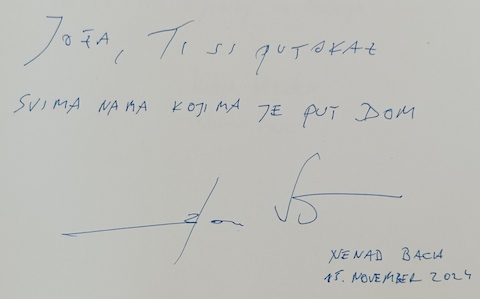 Joža, TI SI PUTOKAZ
SVIMA NAMA KOJIMA JE PUT DOM
NENAD BACH
15. NOVEMBER 2024